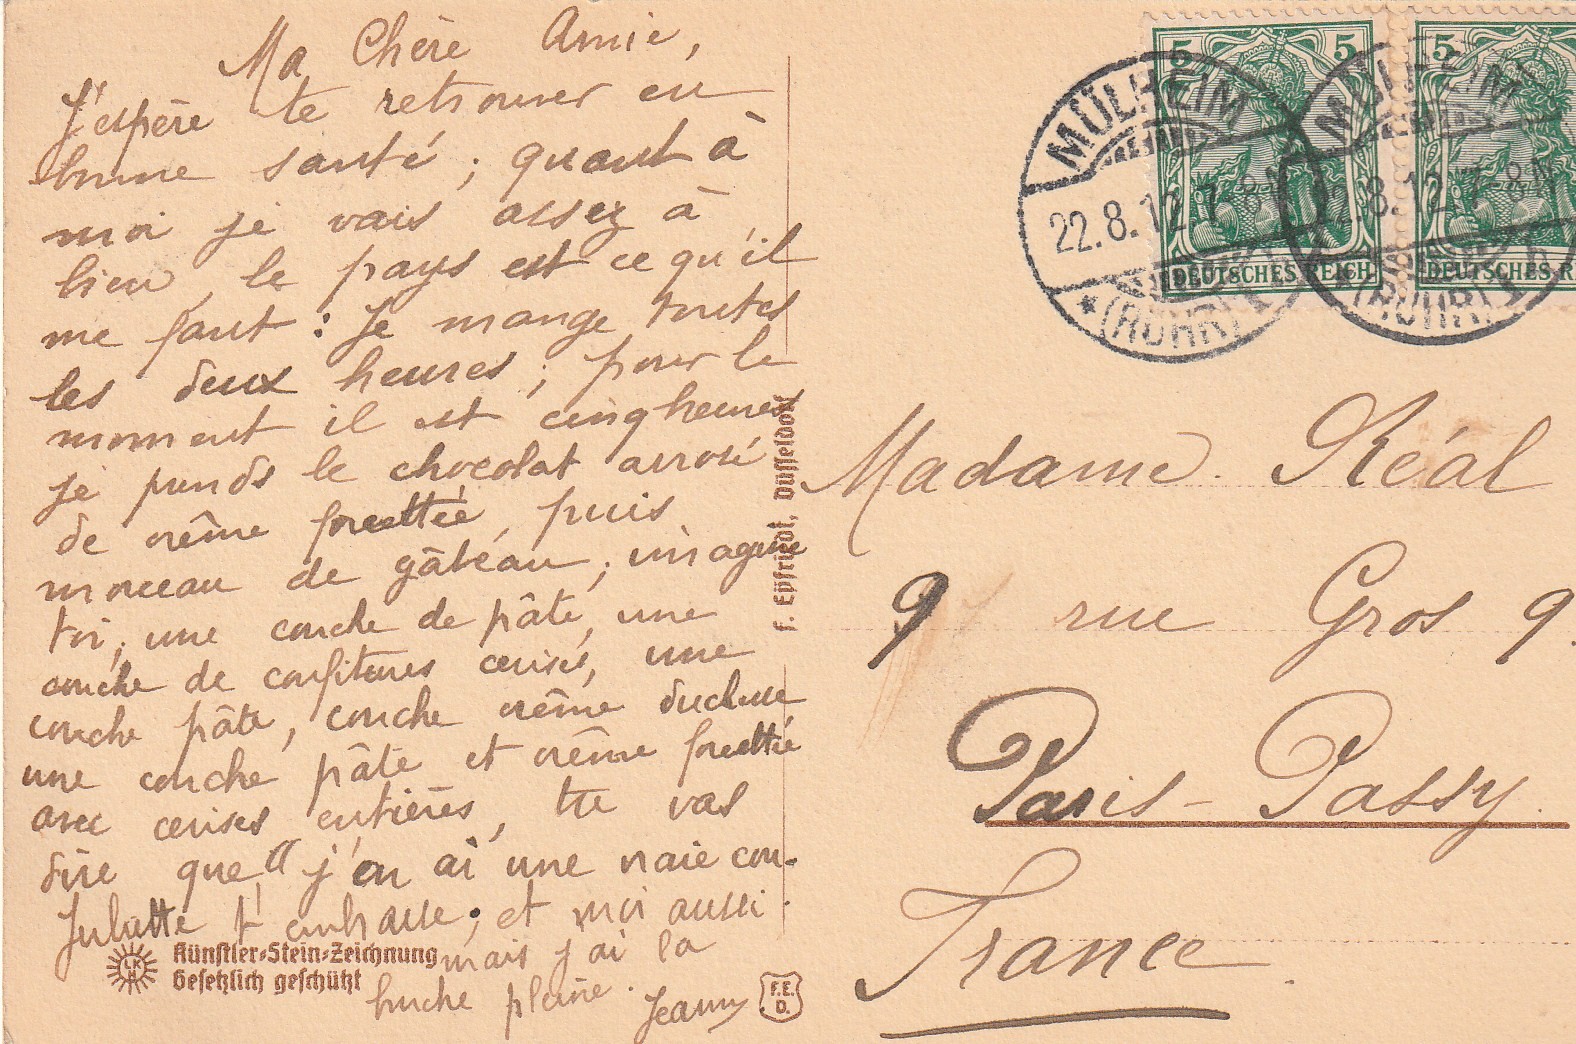 Ma Chère Amie,
J'espère te retrouver en
bonne santé ; quant à
moi je vais assez à
bien, le pays est ce qu'il
me faut : Je mange toutes
les deux heures ; pour le
moment il est cinq heures
je prends le chocolat arrosé
de crème fouettée, puis
morceau de gâteau ; imagine
toi, une couche de pâte, une
couche de confitures cerises, une
couche pâte, couche crème
une couche pâte et crème fouettée
avec cerises entières, tu vas
dire que "j'en ai une vraie cou-
Juliette t'embrasse ; et moi aussi.
mais j'ai la
buche pleine.
Jeanny
Künstler-Stein-Zeichnung
Gesetzlich geschützt
LKH
F.E.D.
F. Epfriedt, Düsseldorf
5 5
DEUTSCHES REICH
5
DEUTSCHES R
MÜLHEIM
22.8.12 7-8
(RUHR)
MÜLHEIM
22.8.12 7-8N
(RUHR) 1
Madame Réal
9 rue Gros 9.
Paris-Passy.
France.